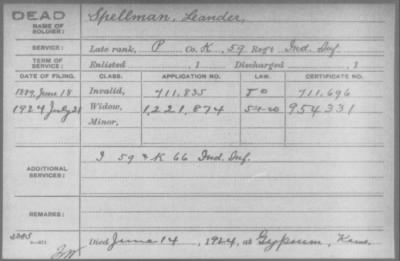 DEAD
NAME OF SOLDIER:
Spellman, Leander,
SERVICE:
Late rank, P Co. K, 59 Regt. Ind. Inf.
TERM OF SERVICE:
Enlisted , 1 Discharged , 1
DATE OF FILING. CLASS. APPLICATION NO. LAW. CERTIFICATE NO.
1889, June 18 Invalid, 711,835 711,696
1924 July 21 Widow, 1,221,874 954331
Minor,
ADDITIONAL SERVICES:
I 59 & K 66 Ind. Inf.
REMARKS:
Died June 14, 1924, at Gypsum, Kans.